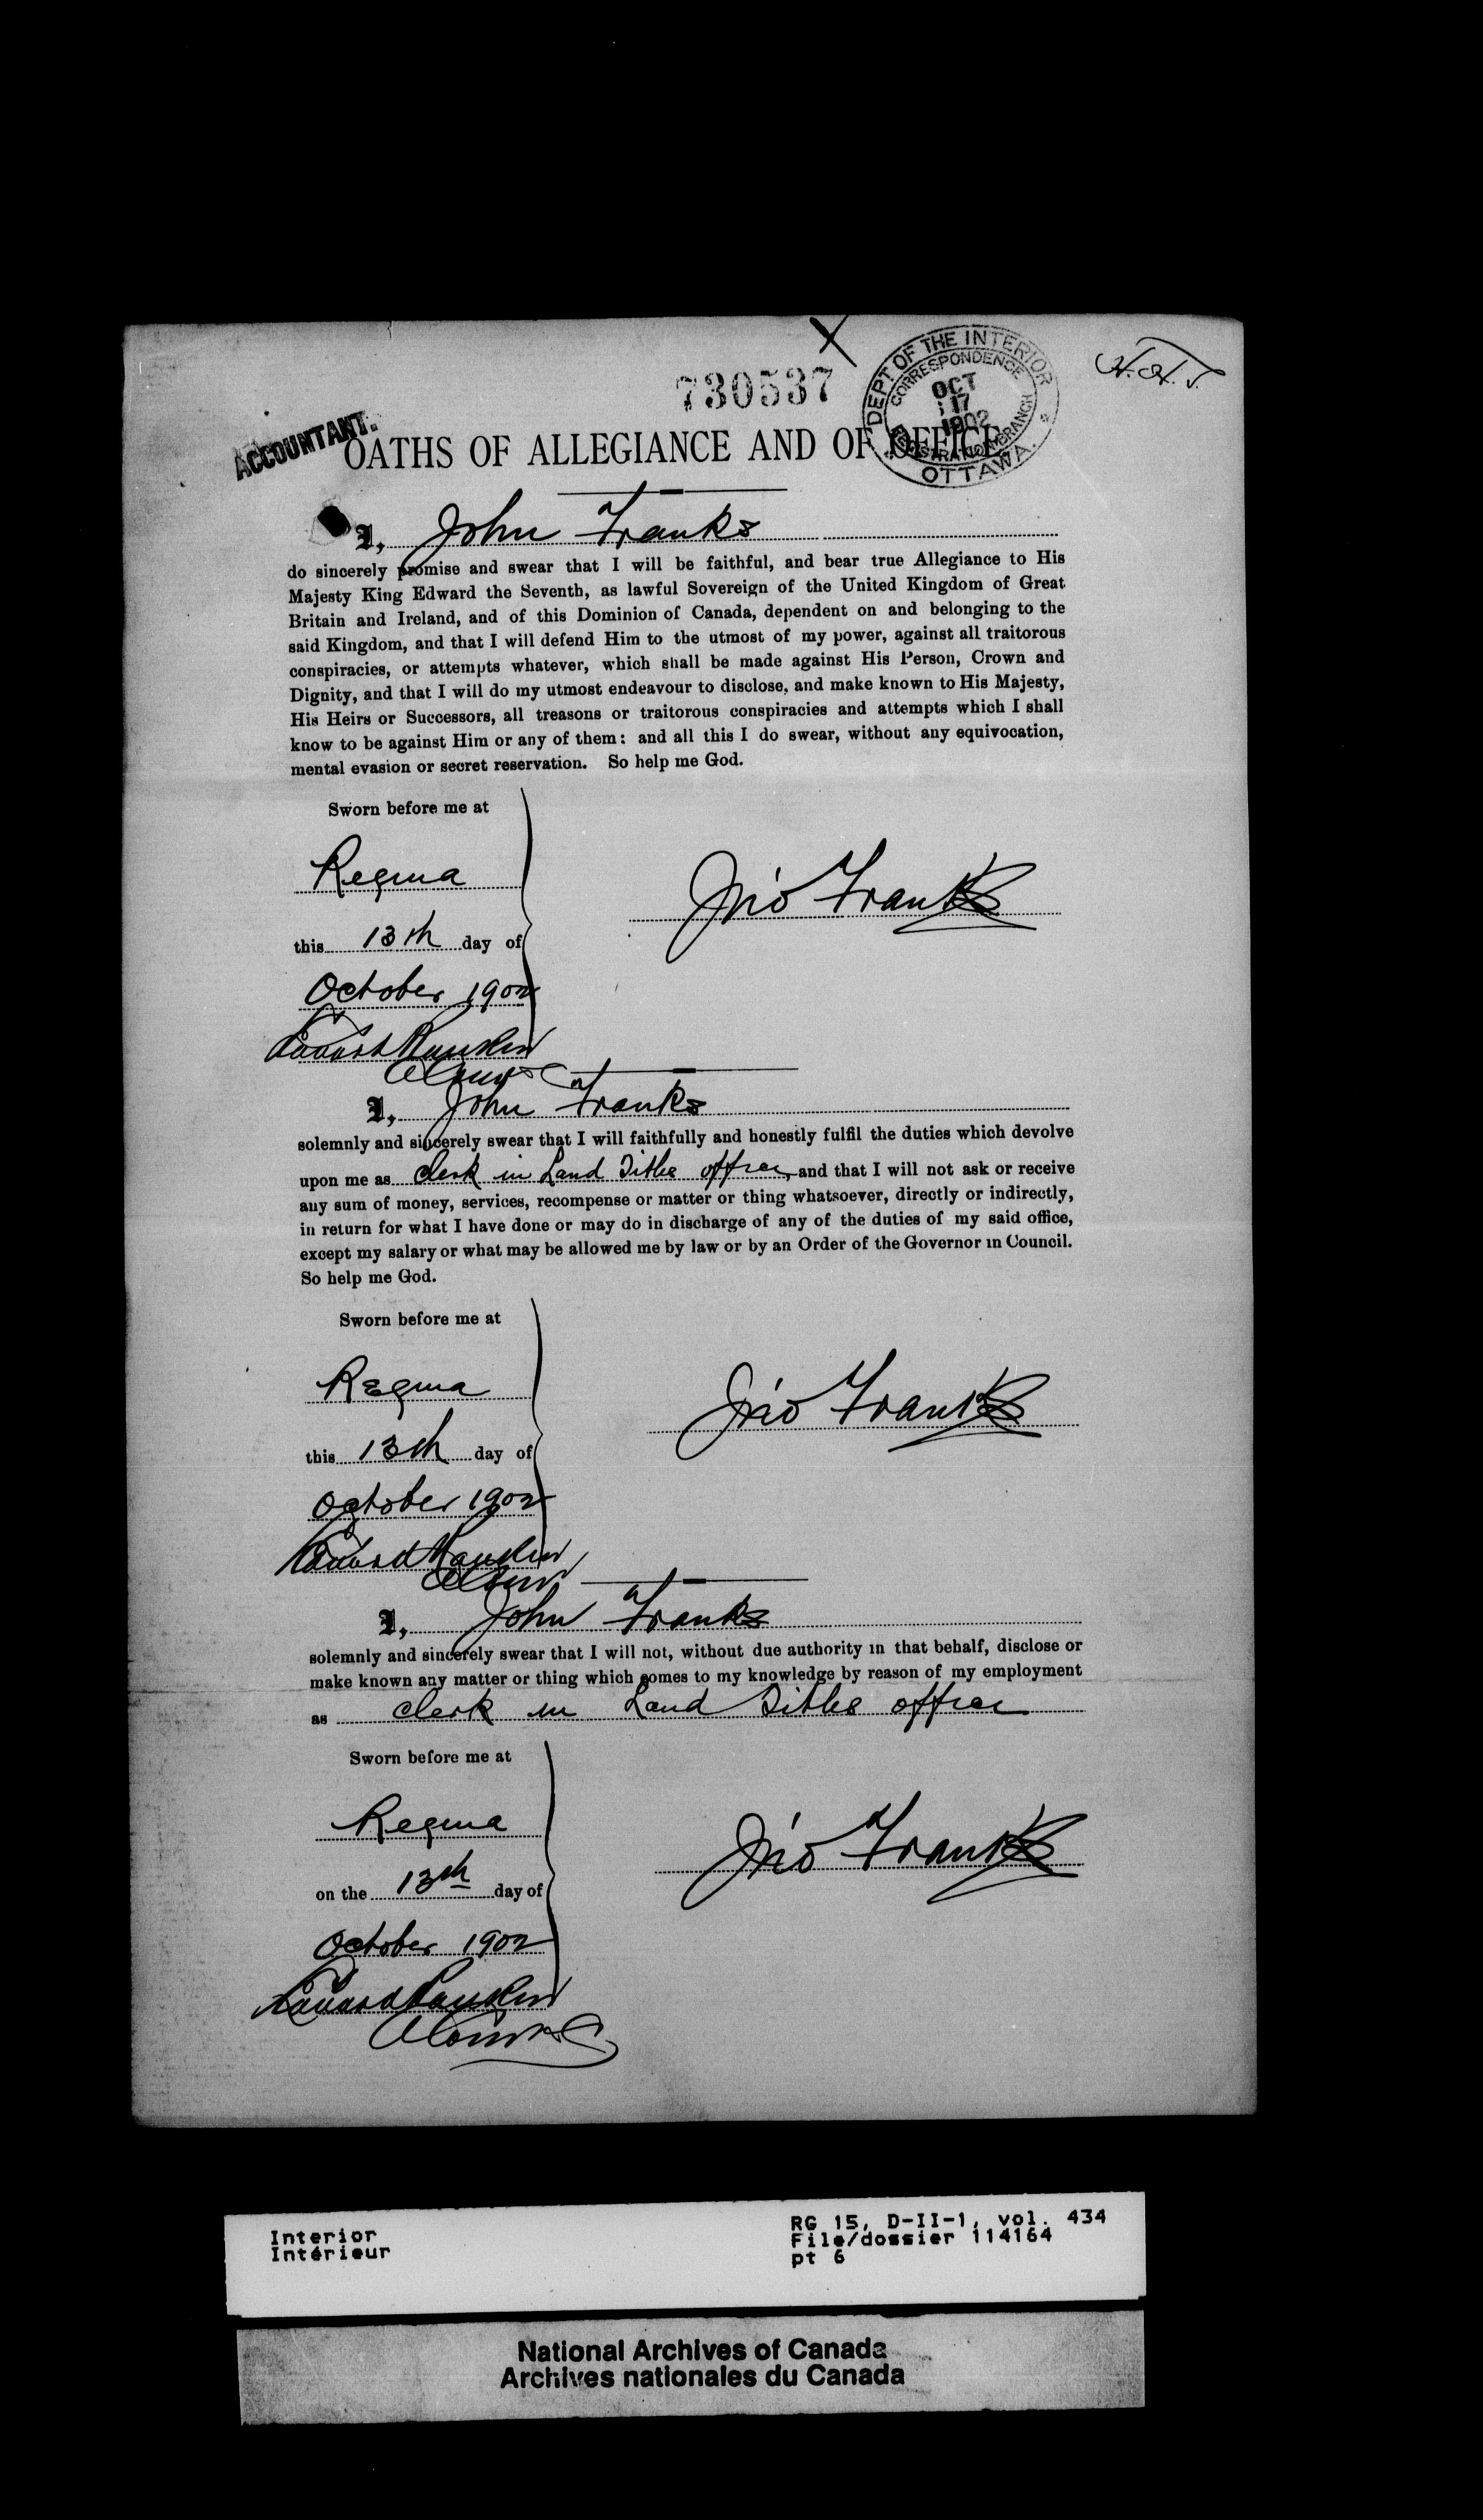 730537
DEPT OF THE INTERIOR
CORRESPONDENCE
OCT
17
1902
REGISTRATION BRANCH
OTTAWA.
ACCOUNTANT.
OATHS OF ALLEGIANCE AND OF OFFICE.
I, John Franks
do sincerely promise and swear that I will be faithful, and bear true Allegiance to His
Majesty King Edward the Seventh, as lawful Sovereign of the United Kingdom of Great
Britain and Ireland, and of this Dominion of Canada, dependent on and belonging to the
said Kingdom, and that I will defend Him to the utmost of my power, against all traitorous
conspiracies, or attempts whatever, which shall be made against His Person, Crown and
Dignity, and that I will do my utmost endeavour to disclose, and make known to His Majesty,
His Heirs or Successors, all treasons or traitorous conspiracies and attempts which I shall
know to be against Him or any of them: and all this I do swear, without any equivocation,
mental evasion or secret reservation. So help me God.
Sworn before me at
Regina
Jno Franks
this 13th day of
October 1902
I, John Franks
solemnly and sincerely swear that I will faithfully and honestly fulfil the duties which devolve
upon me as Clerk in Land Titles office, and that I will not ask or receive
any sum of money, services, recompense or matter or thing whatsoever, directly or indirectly,
in return for what I have done or may do in discharge of any of the duties of my said office,
except my salary or what may be allowed me by law or by an Order of the Governor in Council.
So help me God.
Sworn before me at
Regina
Jno Franks
this 13th day of
October 1902
I, John Franks
solemnly and sincerely swear that I will not, without due authority in that behalf, disclose or
make known any matter or thing which comes to my knowledge by reason of my employment
as clerk in Land Titles office
Sworn before me at
Regina
Jno Franks
on the 13th day of
October 1902
Interior
Intérieur
RG 15, D-II-1, vol. 434
File/dossier 114164
pt 6
National Archives of Canada
Archives nationales du Canada